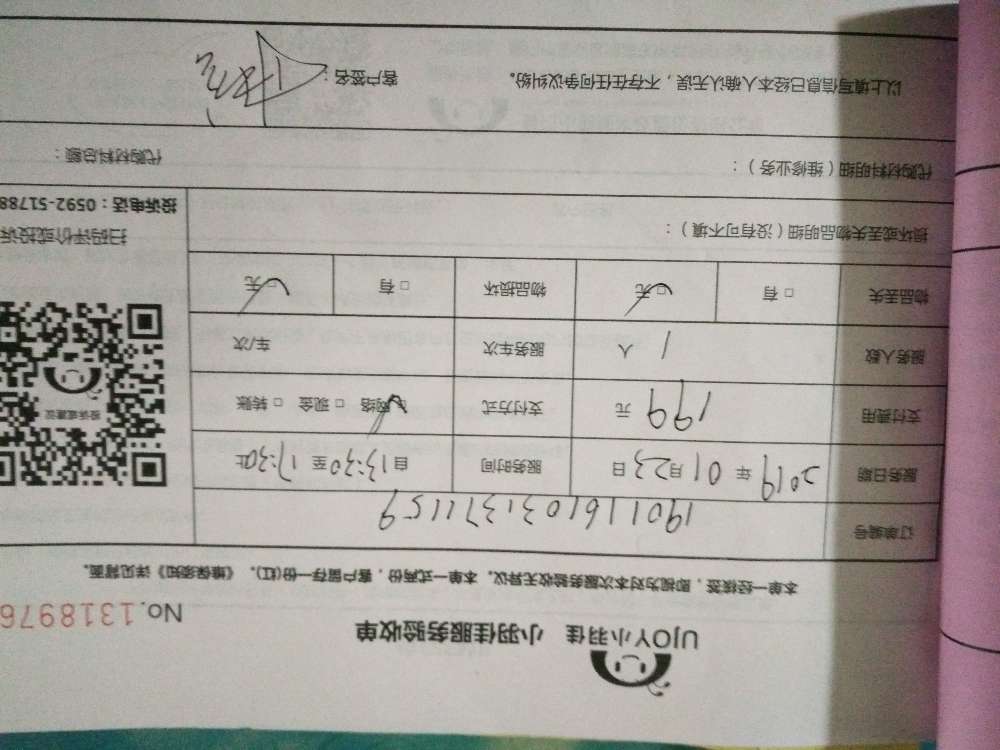 UJOY小羽佳 小羽佳服务验收单
No.1318976
本单一经核签，即视为对本次服务验收无异议。本单一式两份，客户留存一份(红)。《维保须知》详见背面。
订单编号 1901161031371159
服务日期 2019年01月23日 服务时间 自13:30至17:30止
支付费用 199元 支付方式 网络 □现金 □转账
服务人数 1人 服务车次 车/次
物品丢失 □有 □无 物品损坏 □有 □无
损坏或丢失物品明细（没有可不填）：
代购材料明细（维修业务）： 代购材料总额：
以上填写信息已经本人确认无误，不存在任何争议纠纷。 客户签名：
投诉或建议
扫码评价或投诉
投诉电话：0592-51788